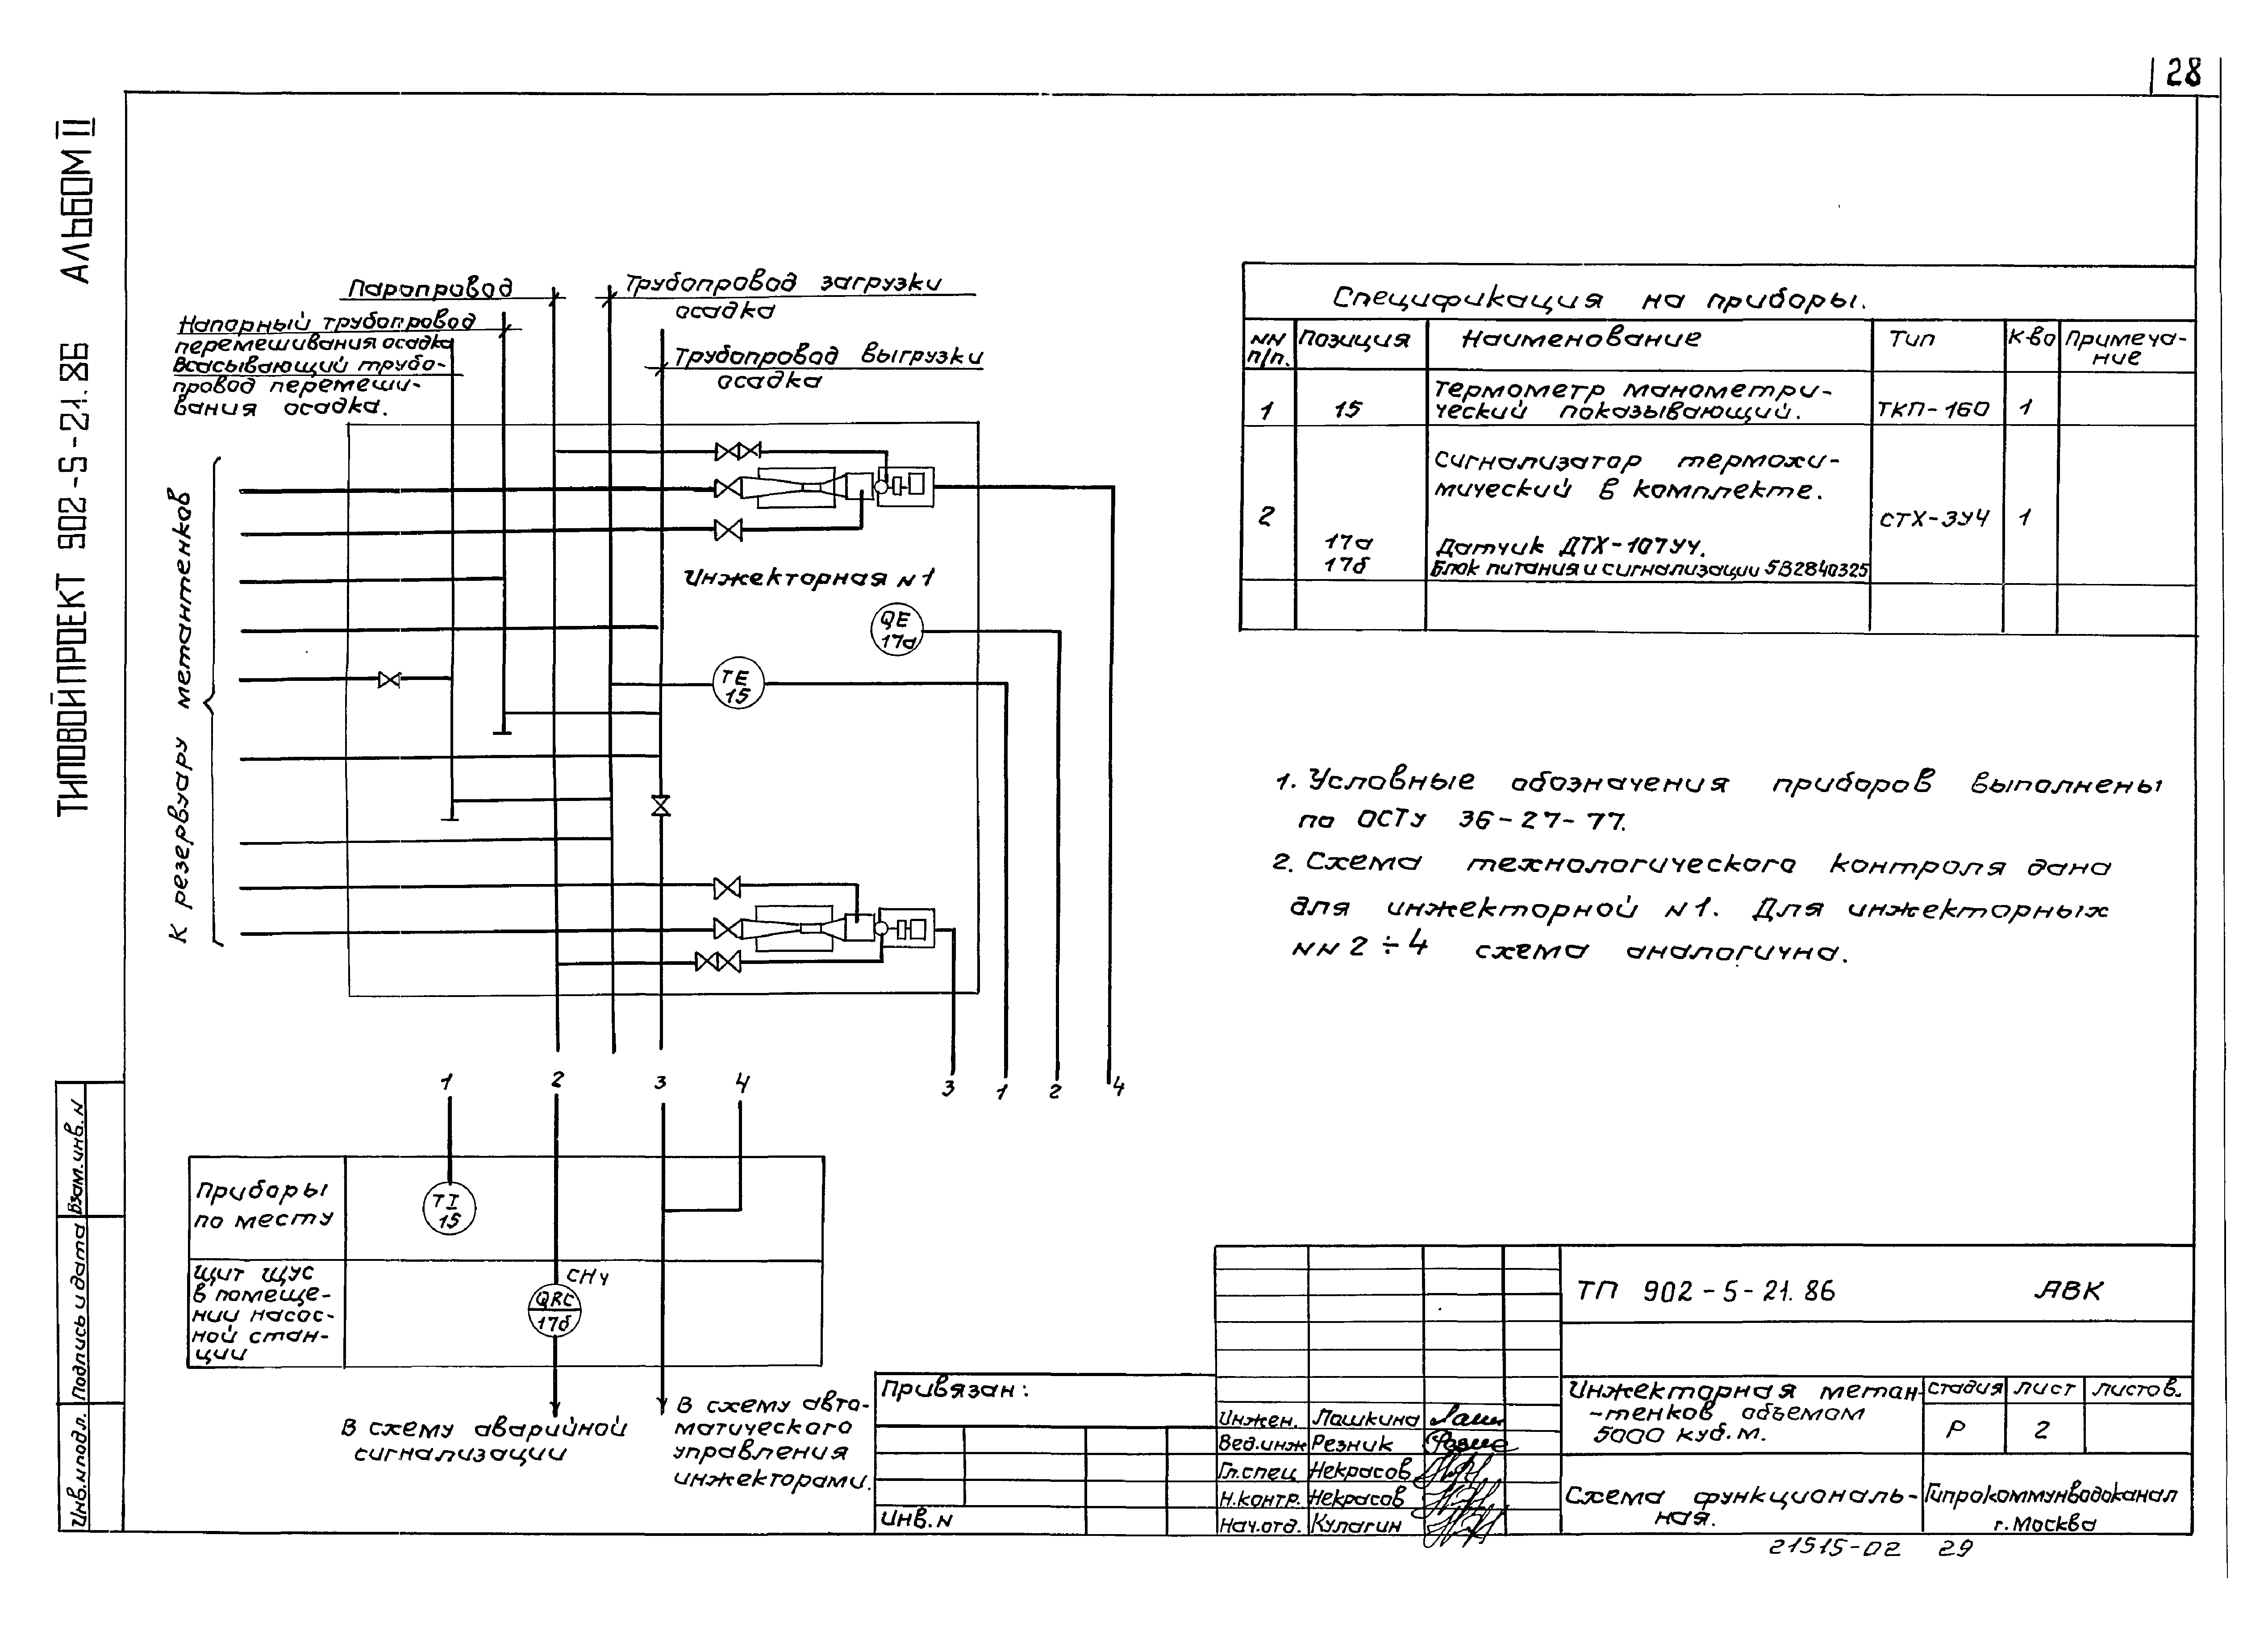 28
ТИПОВОЙ ПРОЕКТ 902-5-21.86 АЛЬБОМ II
Паропровод
Трубопровод загрузки
осадка
Напорный трубопровод
перемешивания осадка
Всасывающий трубо-
провод перемеши-
вания осадка.
Трубопровод выгрузки
осадка
К резервуару метантенков
Инжекторная N1
QE
17а
TE
15
3 1 2 4
1 2 3 4
Приборы
по месту
TI
15
Щит ЩУС
в помеще-
нии насос-
ной стан-
ции
CH4
QRC
17б
В схему аварийной
сигнализации
В схему авто-
матического
управления
инжекторами.
Спецификация на приборы.
NN
п/п.
Позиция
Наименование
Тип
К-во
Примеча-
ние
1
15
Термометр манометри-
ческий показывающий.
ТКП-160
1
2
Сигнализатор термохи-
мический в комплекте.
СТХ-3У4
1
17а
Датчик ДТХ-107У4.
17б
Блок питания и сигнализации 5В2840325
1. Условные обозначения приборов выполнены
по ОСТу 36-27-77.
2. Схема технологического контроля дана
для инжекторной N1. Для инжекторных
NN 2÷4 схема аналогична.
Взам.инв.N
Подпись и дата
Инв.N подл.
Привязан:
Инв.N
Инжен. Лашкина
Вед.инж Резник
Гл.спец Некрасов
Н.контр. Некрасов
Нач.отд. Кулагин
ТП 902-5-21.86 АВК
Инжекторная метан-
-тенков объемом
5000 куб.м.
стадия лист листов.
Р 2
Схема функциональ-
ная.
Гипрокоммунводоканал
г.Москва
21515-02 29